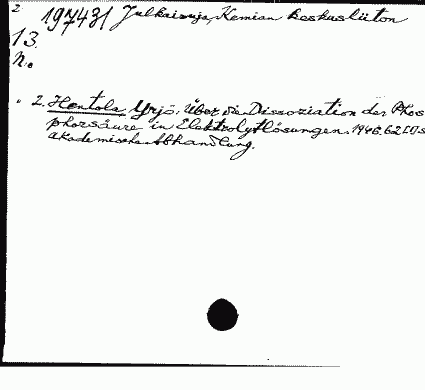 2
197431 Julkaisuja, Kemian keskusliiton
13.
N:o
" 2. Hentola, Yrjö: Über die Dissoziation der Phos
phorsäure in Elektrolytlösungen. 1946. 62 [1] s
Akademische Abhandlung.